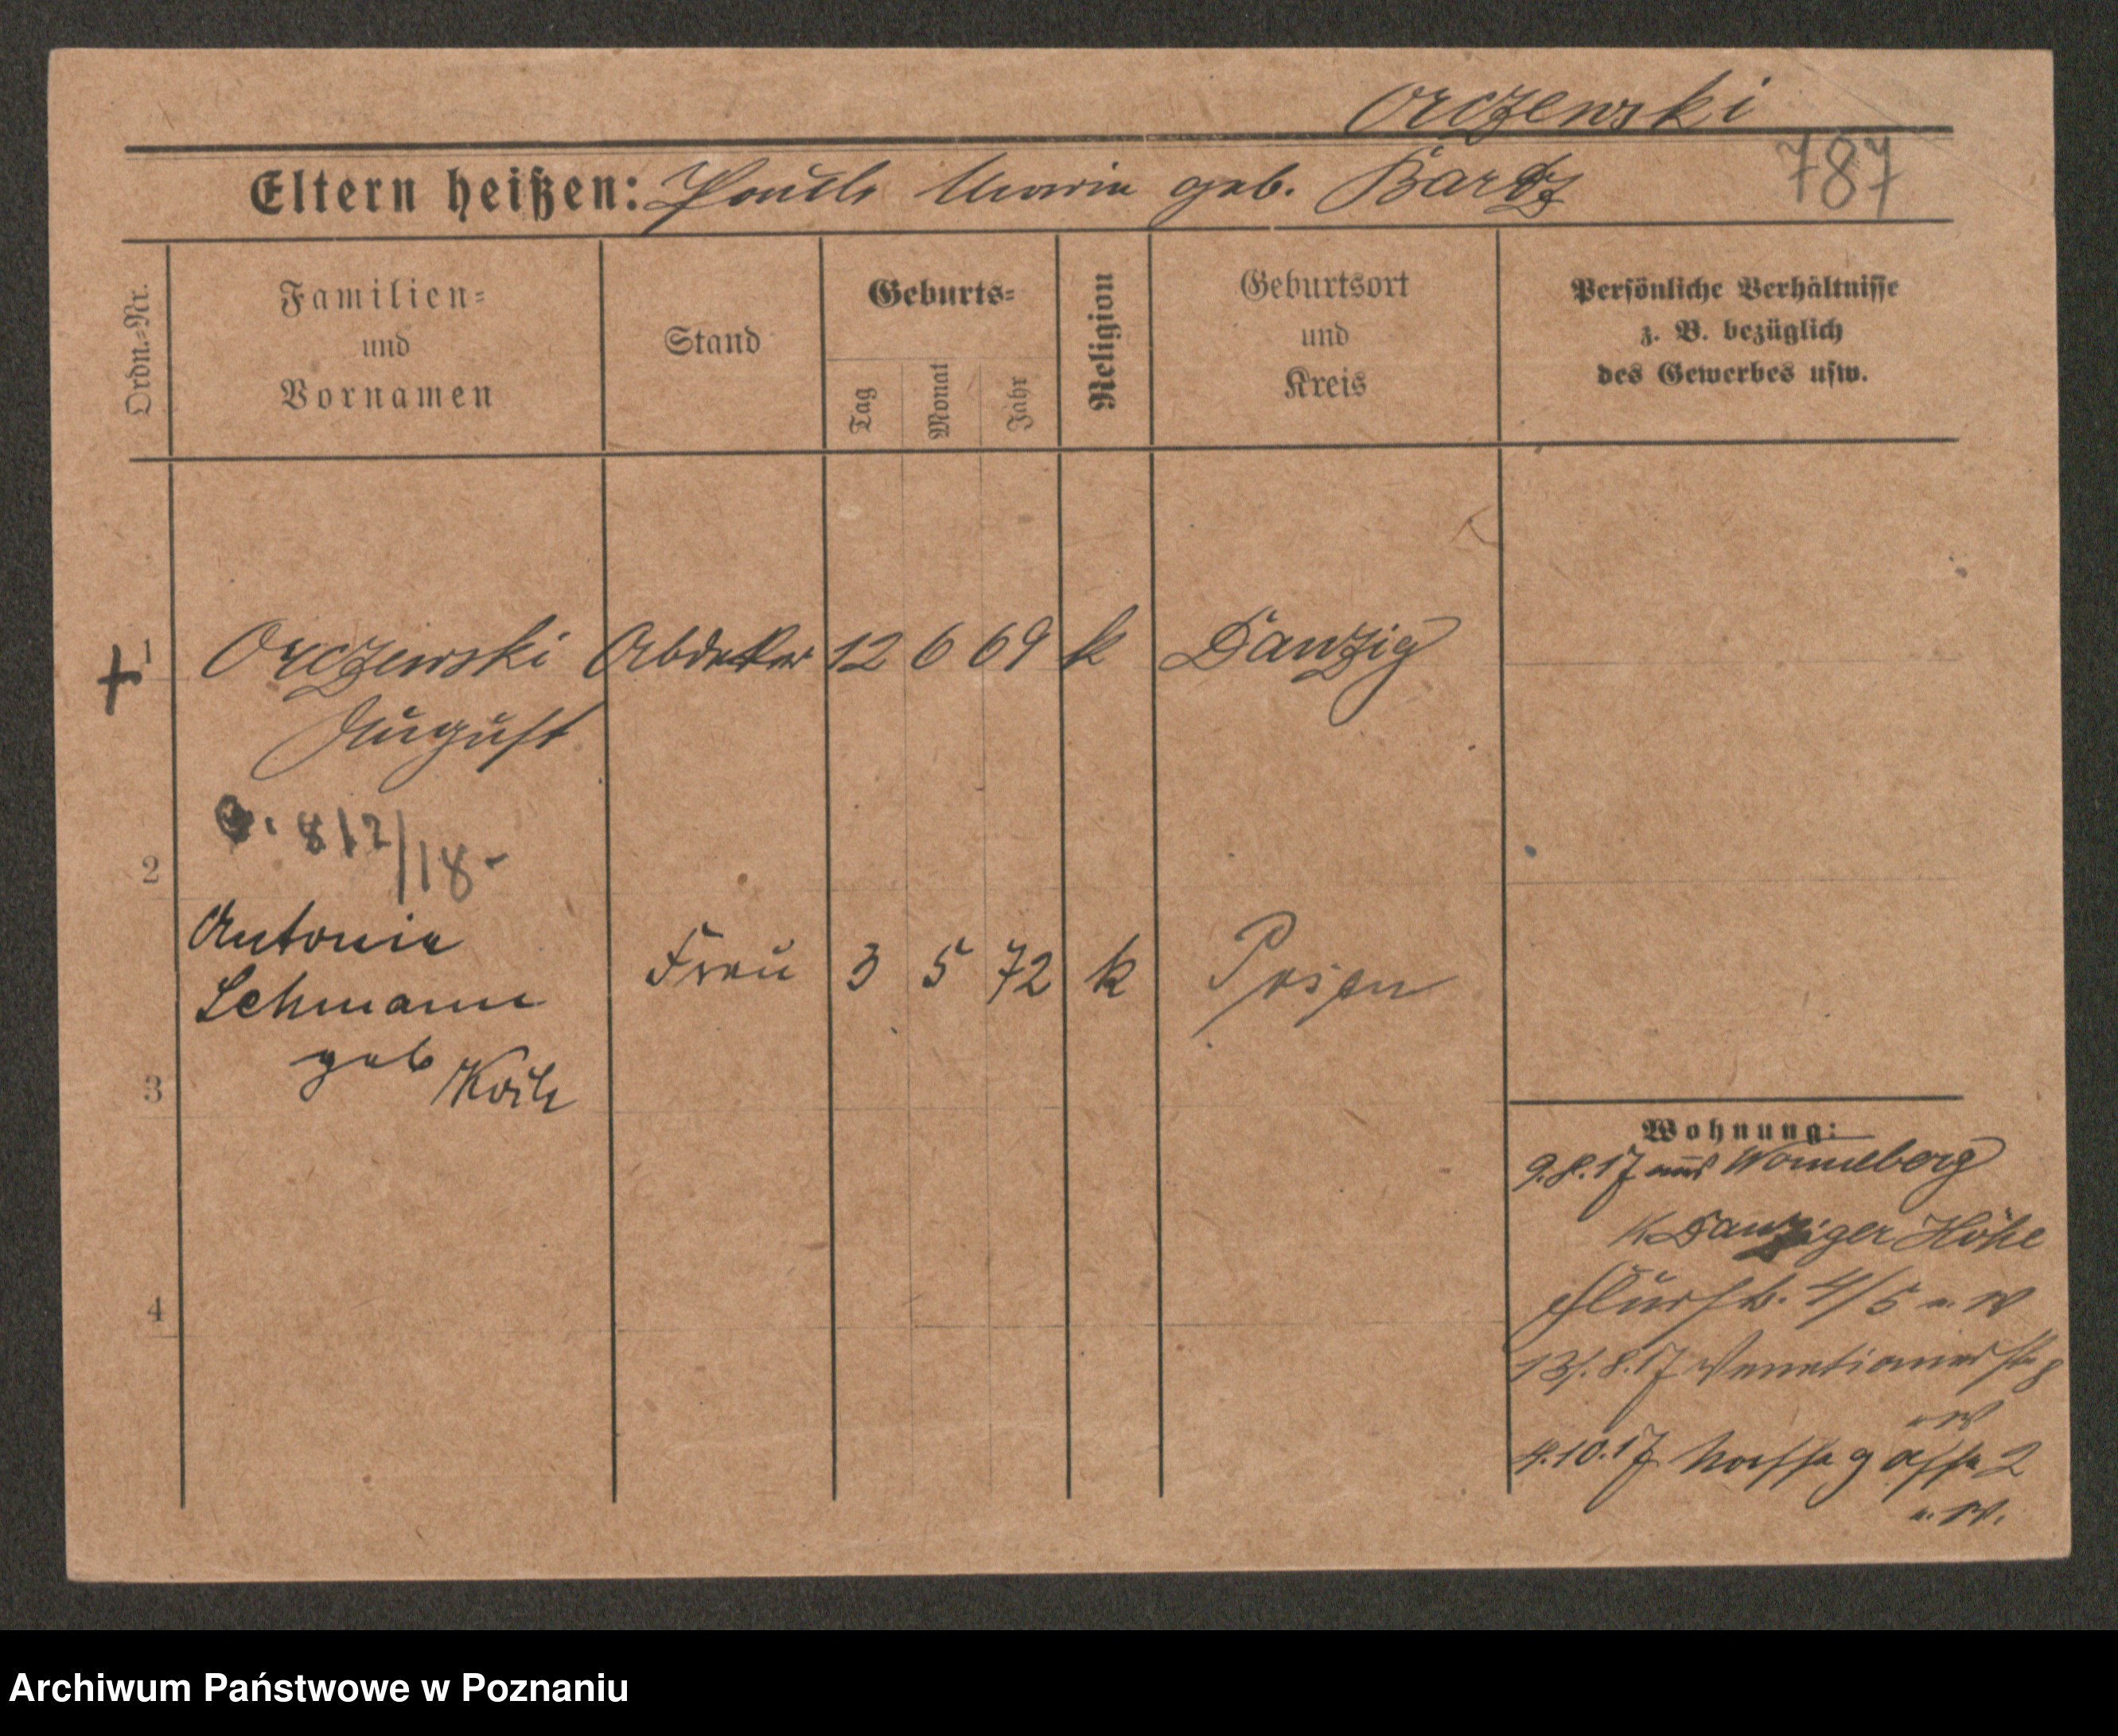 Orczewski
Eltern heißen: Pauls Maria geb. Bartz 787
Ordn.-Nr.
Familien-
und
Vornamen
Stand
Geburts-
Tag
Monat
Jahr
Religion
Geburtsort
und
Kreis
Persönliche Verhältnisse
z. B. bezüglich
des Gewerbes usw.
1 Orczewski Abdeker 12 6 69 k Danzig
August
812/18
2
Antonie
Lehmann Frau 3 5 72 k Posen
geb
3
4
Wohnung:
9.8.17 aus Wonneberg
K Danziger Höhe
4/5 w
13.8.17 Venetianerstr 8
w
4.10.17 gasse 2
w.
Archiwum Państwowe w Poznaniu